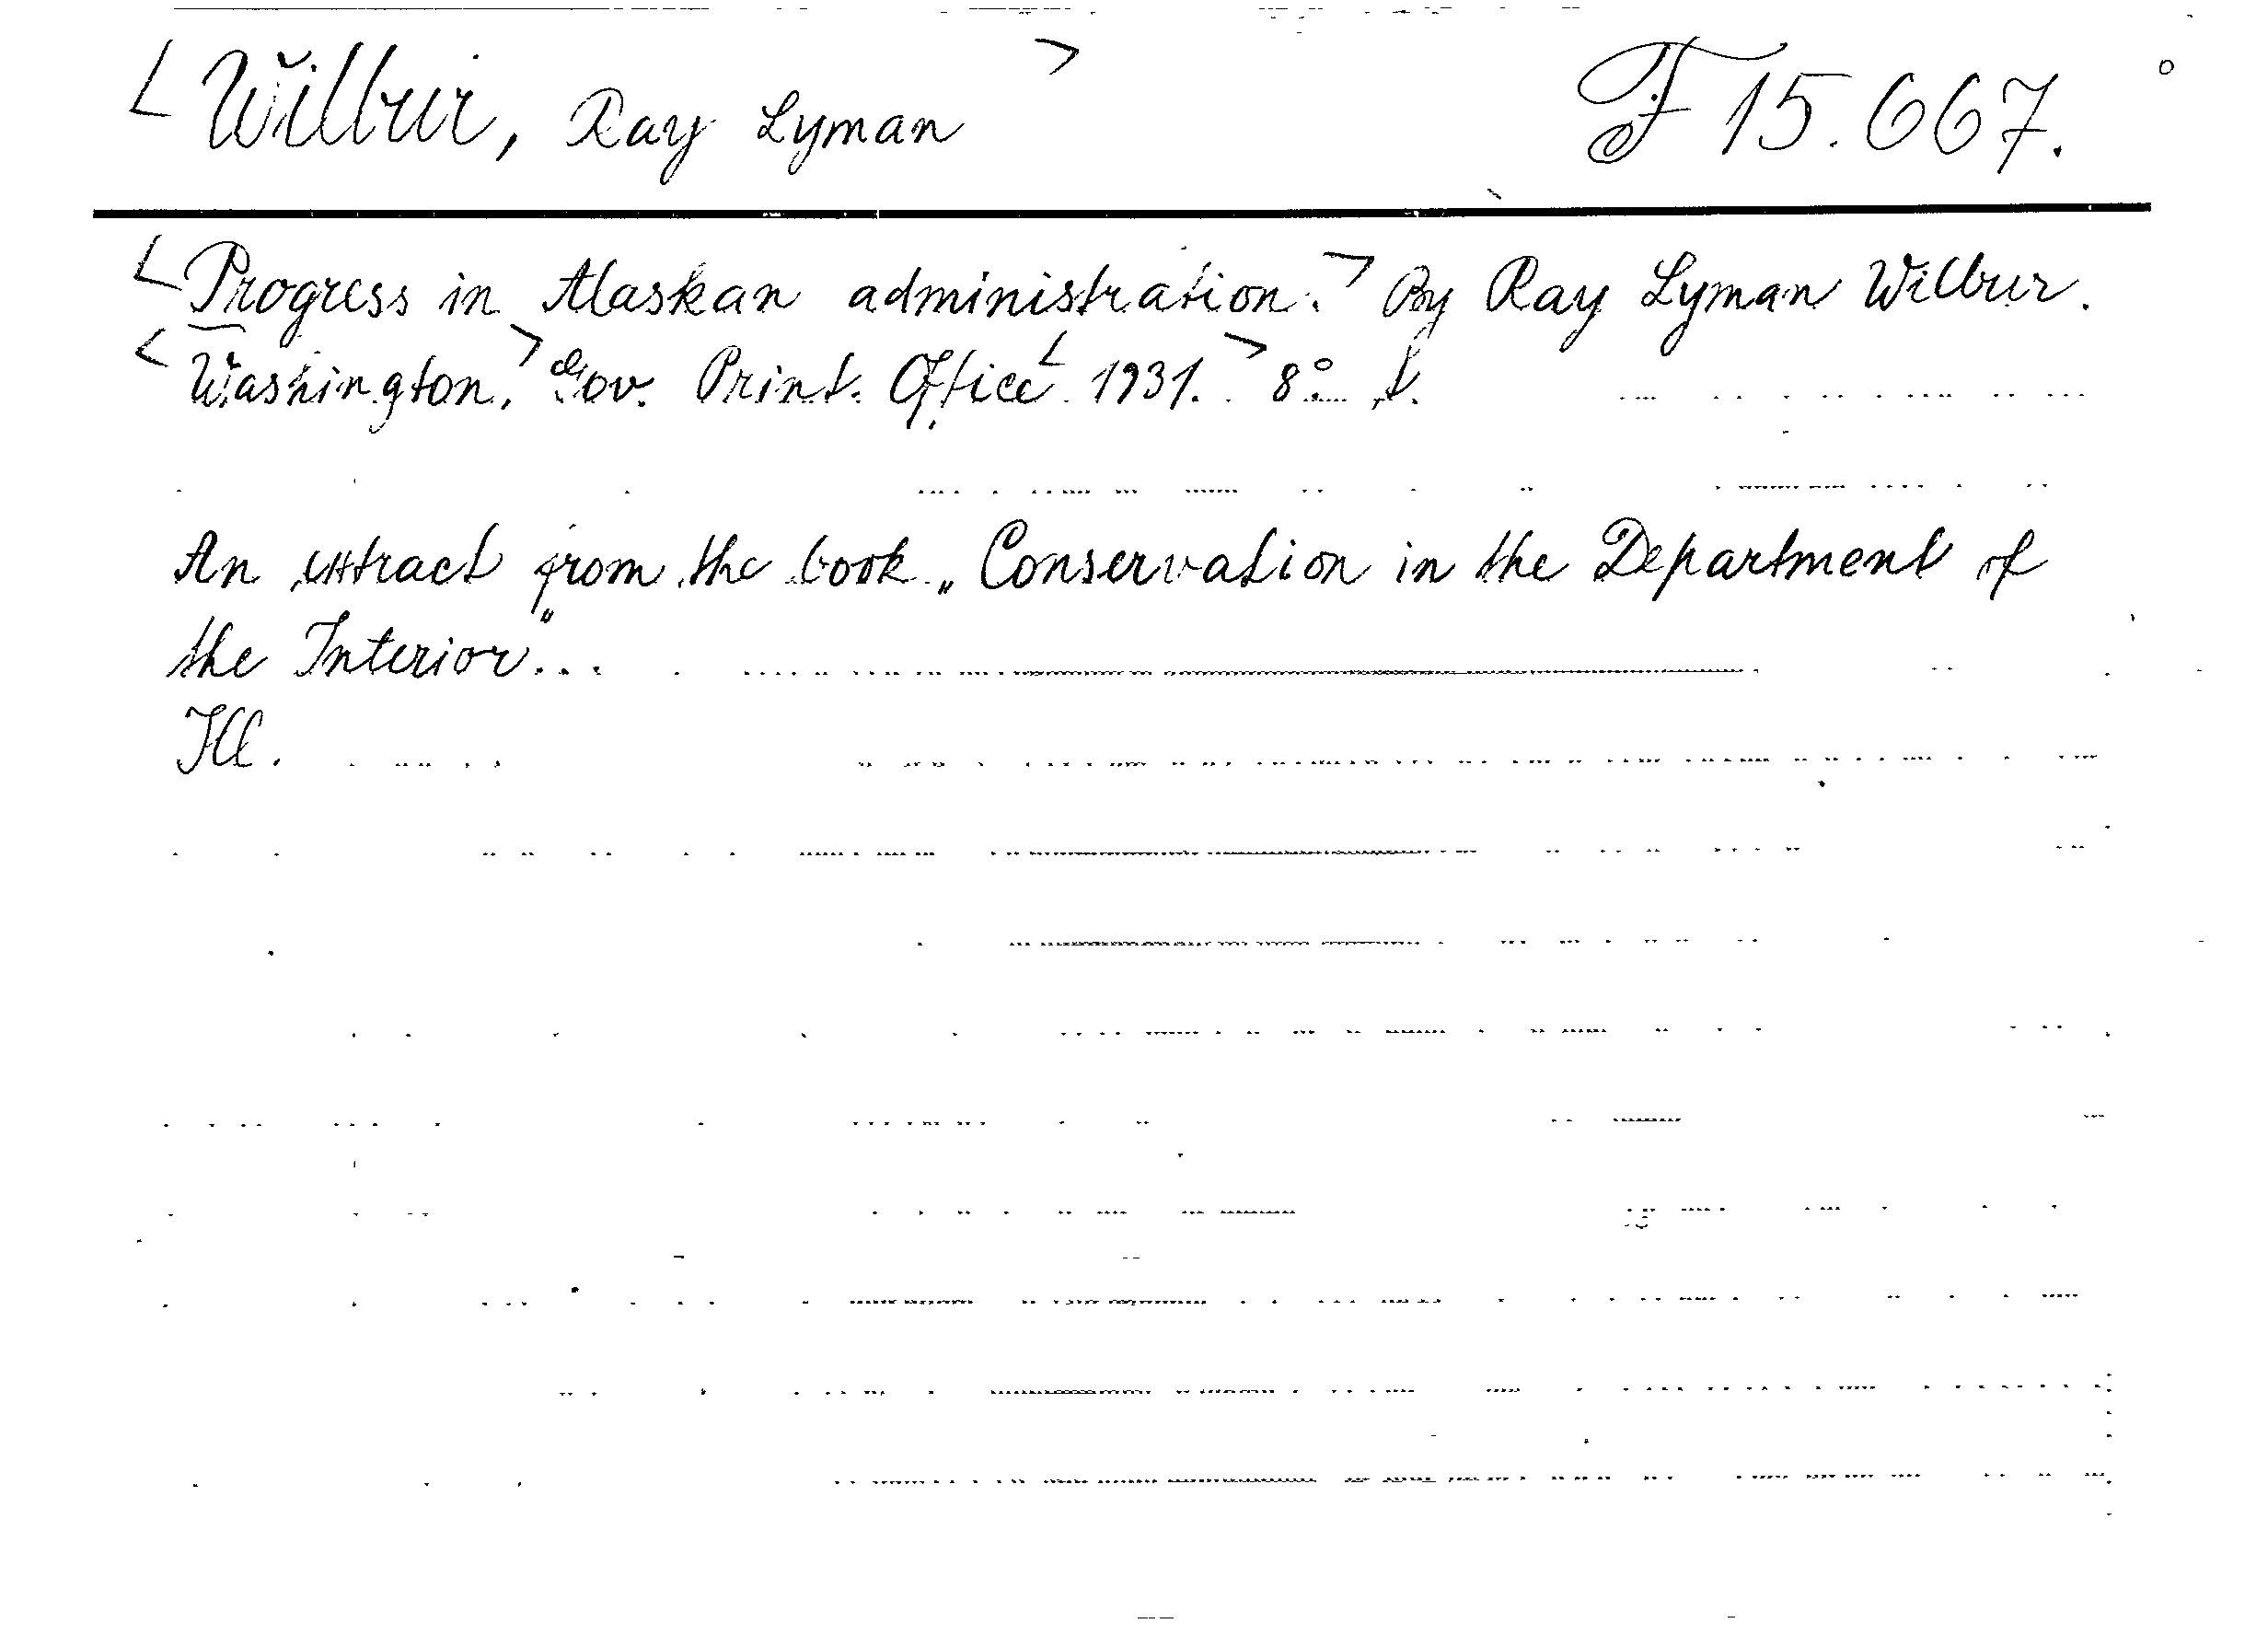 <Wilbur, Ray Lyman> F 15.667.
<Progress in Alaskan administration.> By Ray Lyman Wilbur.
<Washington,> Gov. Print. Office <1931.> 8°.
An extract from the book „Conservation in the Department of
the Interior"...
Ill.